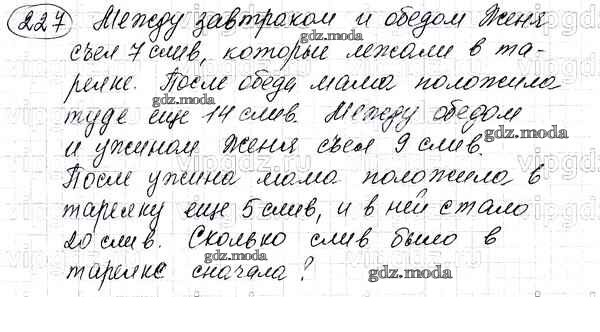 227 Между завтраком и обедом Женя
съел 7 слив, которые лежали в та-
релке. После обеда мама положила
туда еще 14 слив. Между обедом
и ужином Женя съел 9 слив.
После ужина мама положила в
тарелку еще 5 слив, и в ней стало
20 слив. Сколько слив было в
тарелке сначала?
gdz.moda
gdz.moda
gdz.moda
gdz.moda
gdz.moda
gdz.moda
gdz.moda
vipgdz.ru